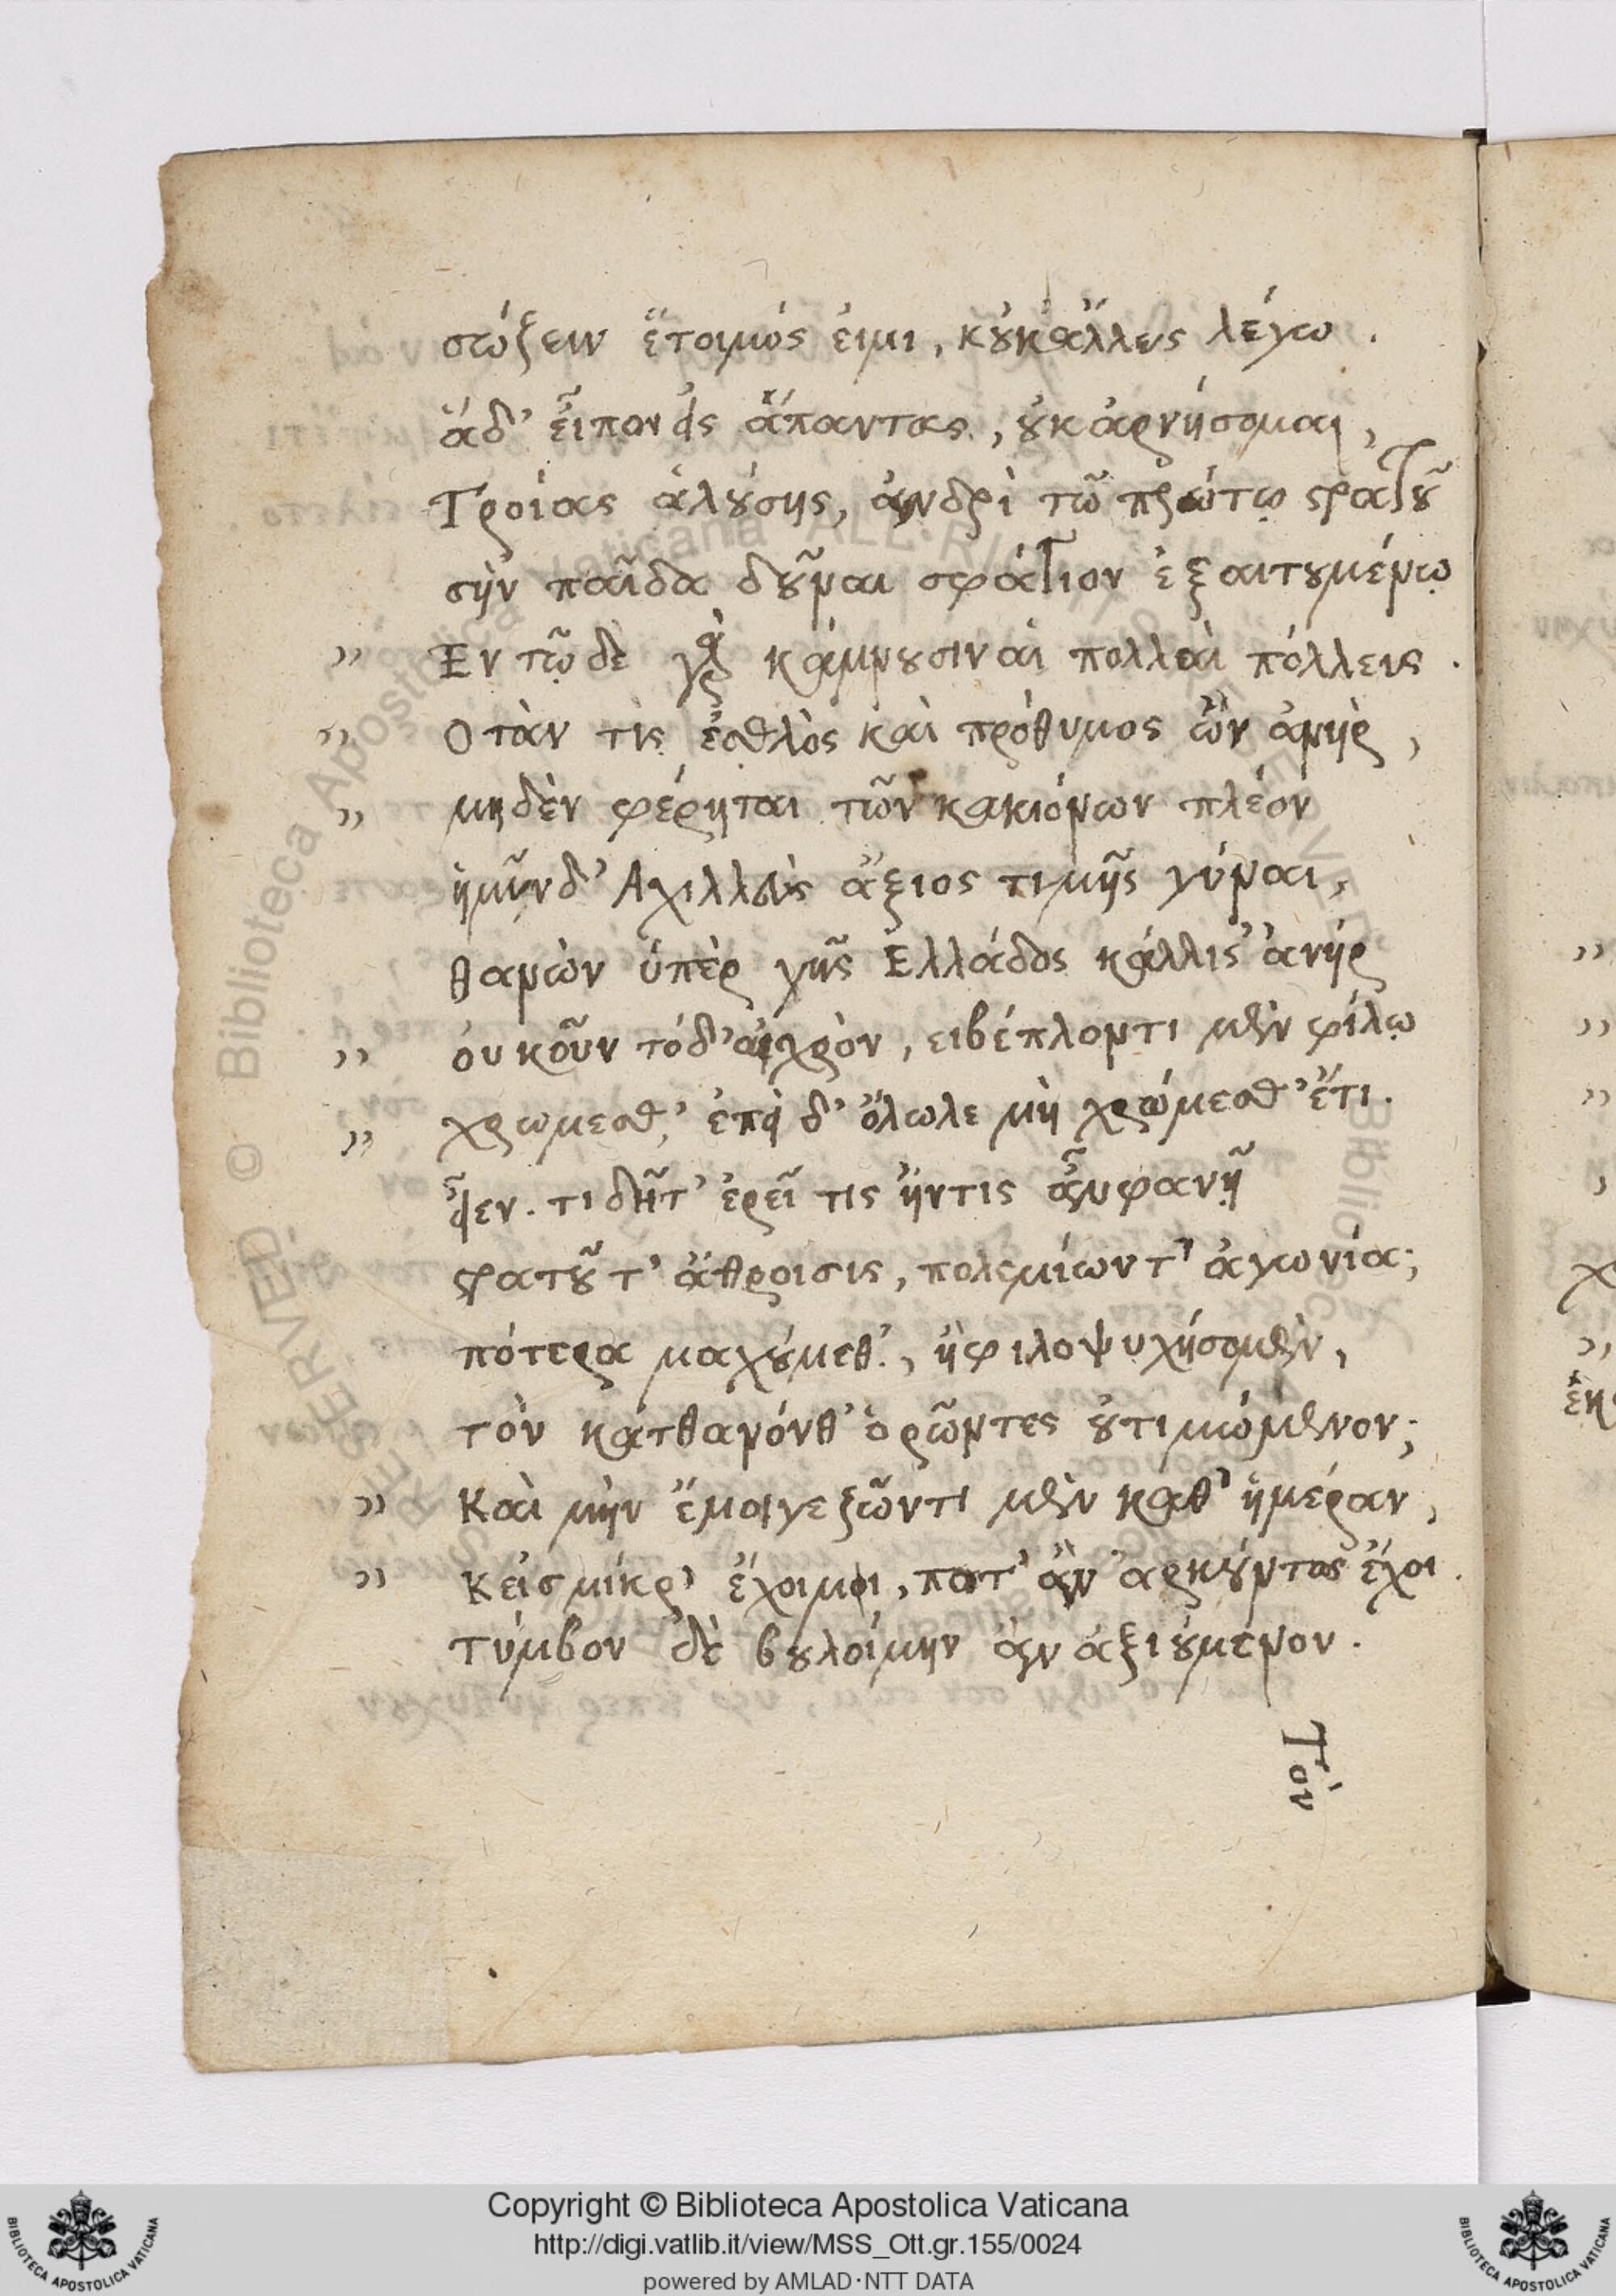 σώζειν ἕτοιμός ἐιμι, κȣκ ἄλλως λέγω.
ἅ δ’ εἶπον εἰς ἅπαντας, ȣκ ἀρνήσομαι,
Τροίας ἁλȣ́σης, ἀνδρὶ τῶ πρώτῳ ϛρατȣ͂
σὴν παῖδα δȣ͂ναι σφάγιον ἐξαιτȣμένῳ
,, Εν τῷδε γὰρ κάμνȣσιν αἱ πολλαὶ πόλλεις.
,, Οτὰν τὶς ἐσθλὸς καὶ πρόθυμος ὢν ἀνὴρ,
,, μηδὲν φέρηται τῶν κακιόνων πλέον
ἡμῖν δ’ Αχιλλεὺς ἄξιος τιμῆς γύναι,
θανὼν ὑπὲρ γῆς Ἑλλάδος κάλλιϛ’ ἀνήρ
,, ὀυκοῦν τόδ’ αἰχρὸν, ει βέπλοντι μὲν φίλῳ
,, χρωμεσθ’, ἐπεὶ δ’ ὄλωλε μὴ χρώμεσθ’ ἔτι.
εἶεν. τι δῆτ’ ἐρεῖ τις ἤν τις ἂν φανῇ
ϛρατȣ͂ τ’ ἄθροισις, πολεμίων τ’ ἀγωνία;
πότερα μαχȣ́μεθ’, ἢ φιλοψυχήσομεν,
τὸν κατθανόνθ’ ὁρῶντες ȣ τιμώμενον;
,, Καὶ μὴν ἔμοιγε ζῶντι μὲν καθ’ ἡμέραν,
,, Κεἰ σμίκρ’ ἔχοιμι, πατ’ ἂν ἀρκȣ́ντως ἔχοι.
τύμβον δὲ βȣλοίμην ἂν ἀξιȣ́μενον.
Τὸν
Copyright © Biblioteca Apostolica Vaticana
http://digi.vatlib.it/view/MSS_Ott.gr.155/0024
powered by AMLAD·NTT DATA